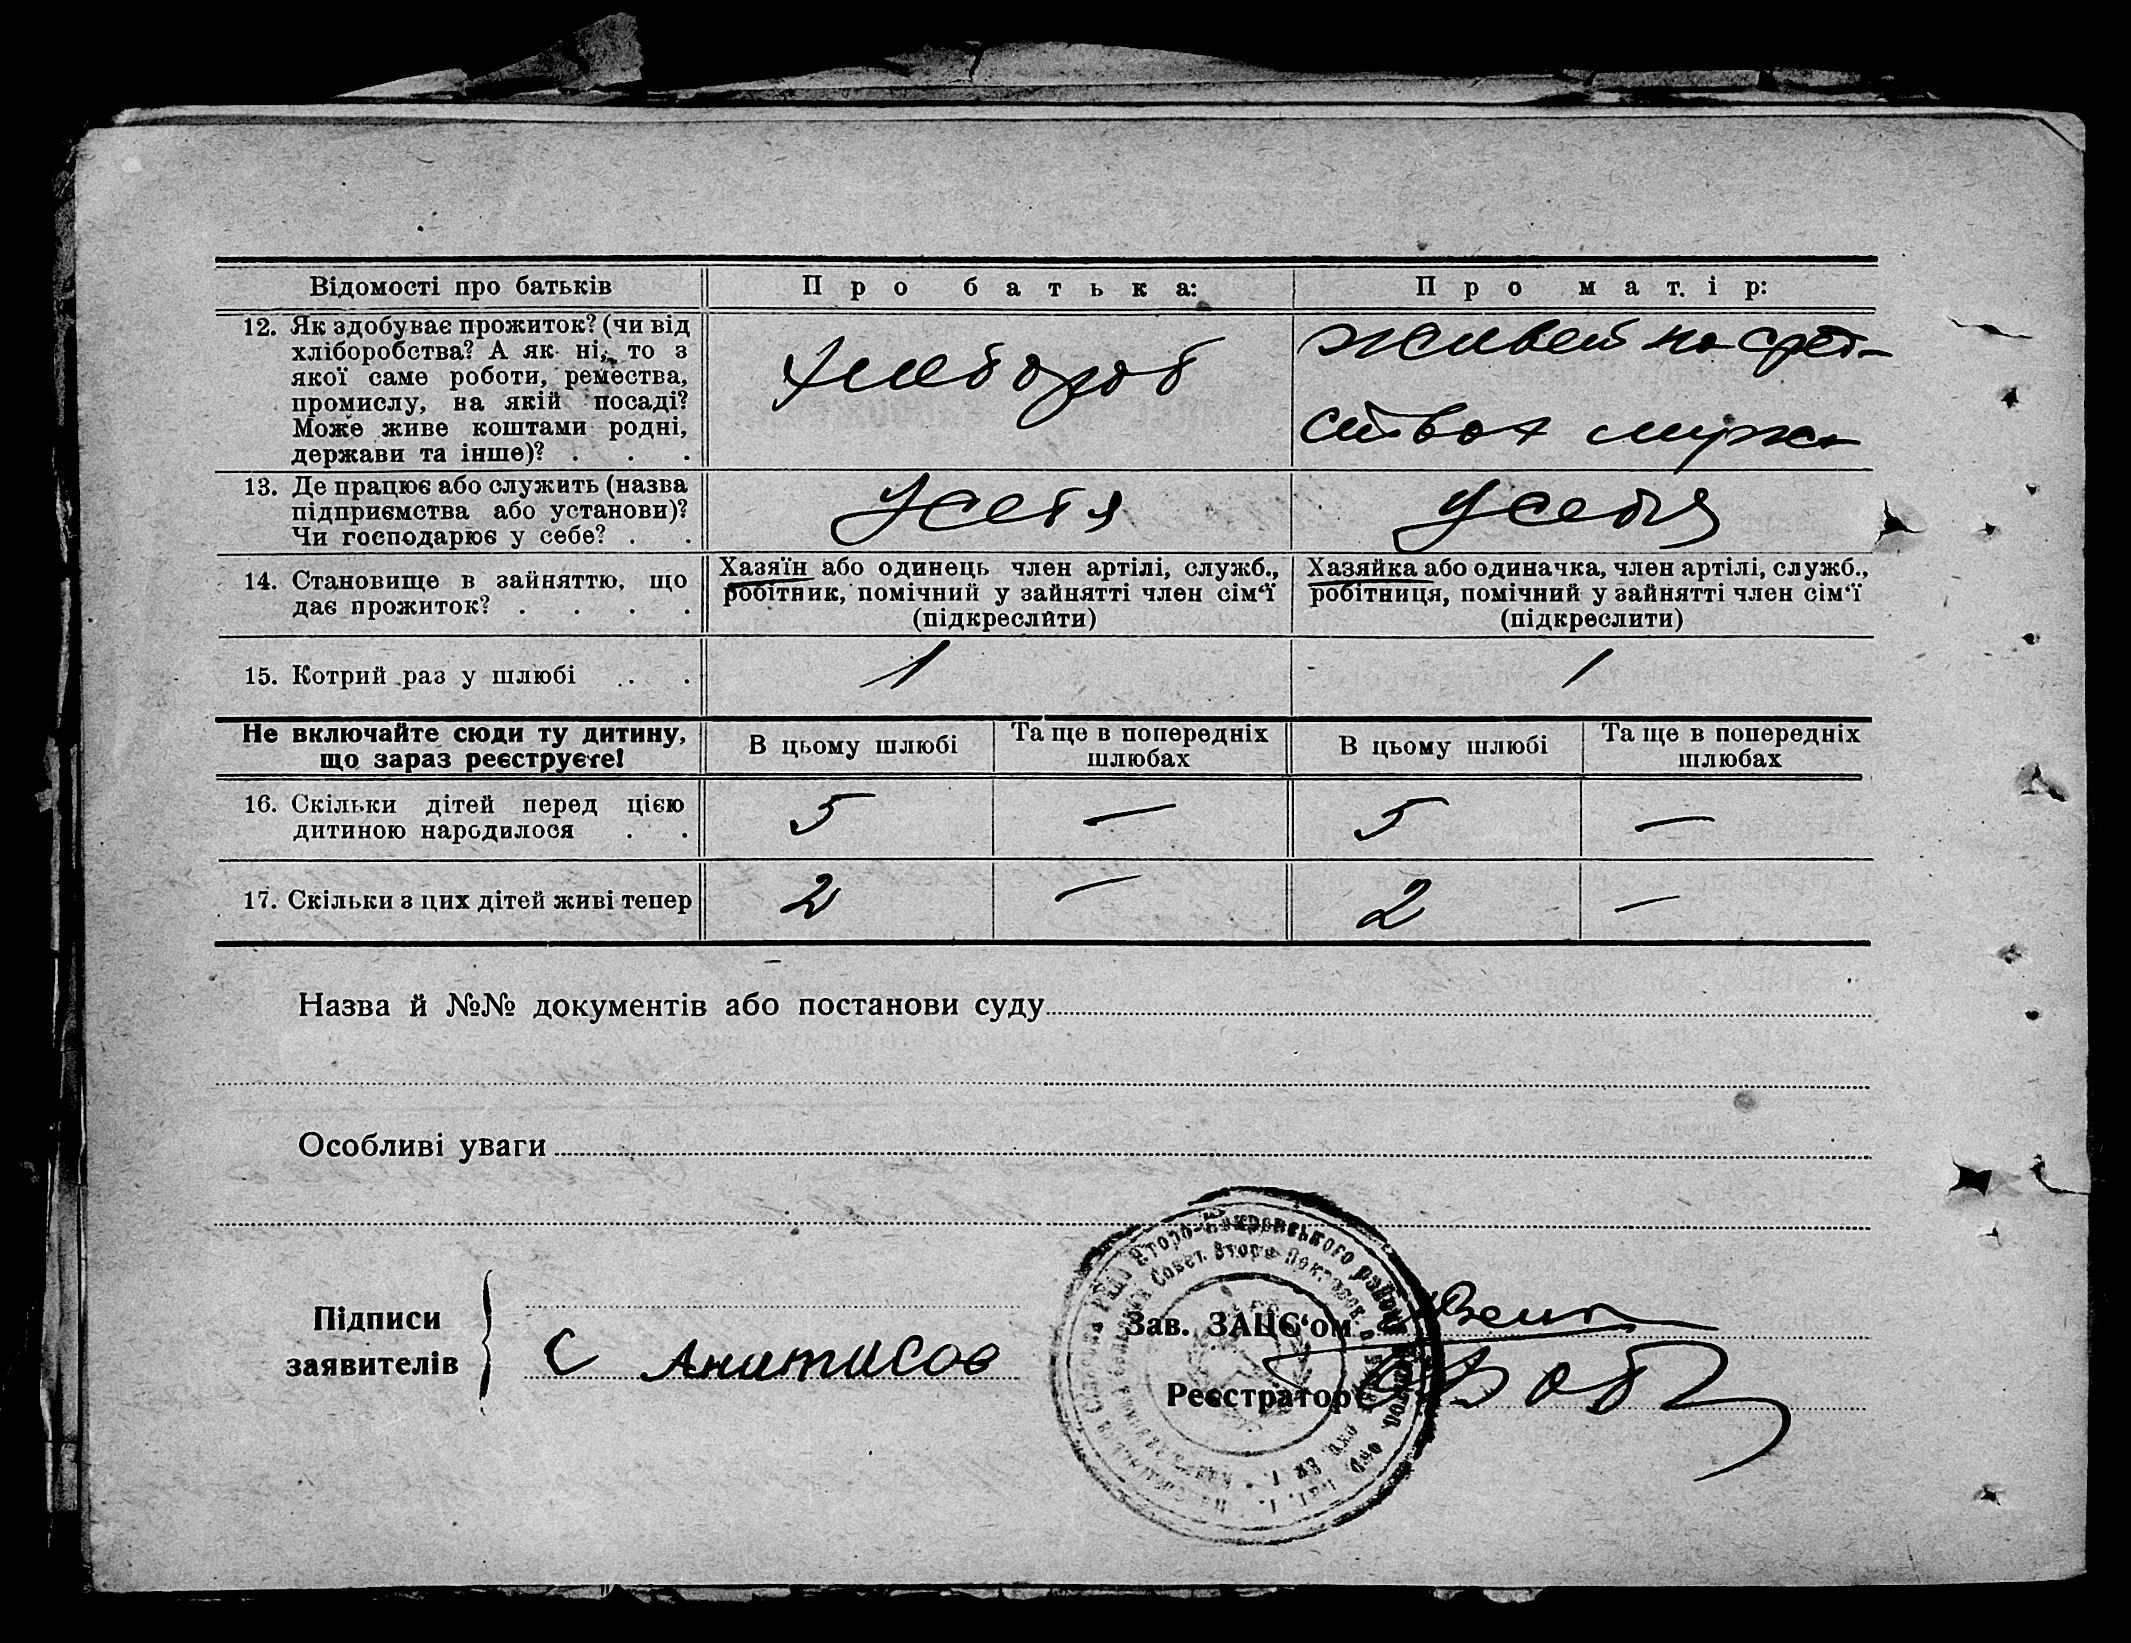 Відомості про батьків
Про батька:
Про матір:
12. Як здобуває прожиток? (чи від
хліборобства? А як ні, то з
якої саме роботи, ремества,
промислу, на якій посаді?
Може живе коштами родні,
держави та інше)? . . .
Хлебороб
Живет на сред-
ствах мужа
13. Де працює або служить (назва
підприємства або установи)?
Чи господарює у себе? . .
У себя
У себя
14. Становище в зайняттю, що
дає прожиток? . . . .
Хазяїн або одинець член артілі, служб.,
робітник, помічний у зайнятті член сім'ї
(підкреслити)
Хазяйка або одиначка, член артілі, служб.,
робітниця, помічний у зайнятті член сім'ї
(підкреслити)
15. Котрий раз у шлюбі . .
1
1
Не включайте сюди ту дитину,
що зараз реєструєте!
В цьому шлюбі
Та ще в попередніх
шлюбах
В цьому шлюбі
Та ще в попередніх
шлюбах
16. Скільки дітей перед цією
дитиною народилося . .
5
—
5
—
17. Скільки з цих дітей живі тепер
2
—
2
—
Назва й №№ документів або постанови суду
Особливі уваги
Підписи
заявителів
С Анитисов
Зав. ЗАЦС'ом
Реєстратор